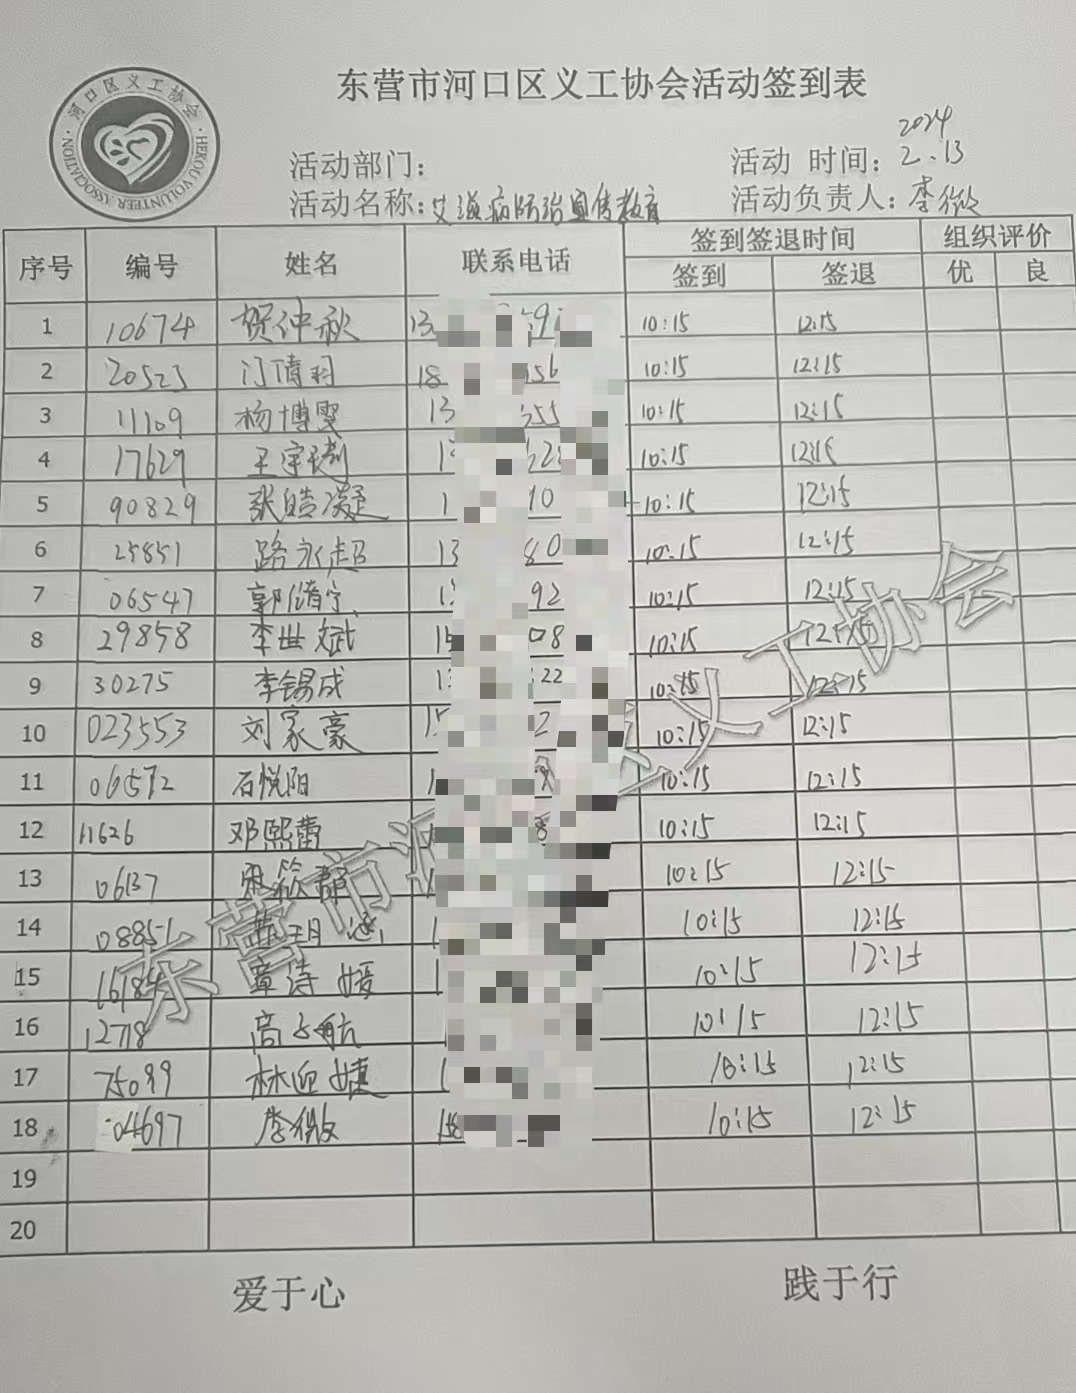 东营市河口区义工协会活动签到表
河口区义工协会
HEKOU VOLUNTEER ASSOCIATION
2024
活动部门： 活动 时间：2.13
活动名称：艾滋病防治宣传教育 活动负责人：李微
序号 编号 姓名 联系电话 签到签退时间 组织评价
签到 签退 优 良
1 10674 贺仲秋 13 10:15 12:15
2 20525 门倩羽 18 56 10:15 12:15
3 11109 杨博雯 13 355 10:15 12:15
4 17629 王宇 10:15 12:15
5 90829 张皓凝 1 10 10:15 12:15
6 25851 路永超 13 80 10:15 12:15
7 06547 郭倩宁 92 10:15 12:15
8 29858 李世斌 15 08 10:15 12:15
9 30275 李锡成 22 10:15 12:15
10 023553 刘家豪 15 2 10:15 12:15
11 06572 石悦阳 1 10:15 12:15
12 11626 邓熙蕾 8 10:15 12:15
13 06137 10:15 12:15
14 08851 10:15 12:15
15 16184 章诗媛 10:15 12:15
16 12718 高子航 10:15 12:15
17 75099 林迎婕 10:15 12:15
18 04697 李微 158 10:15 12:15
19
20
东营市河口区义工协会
爱于心 践于行